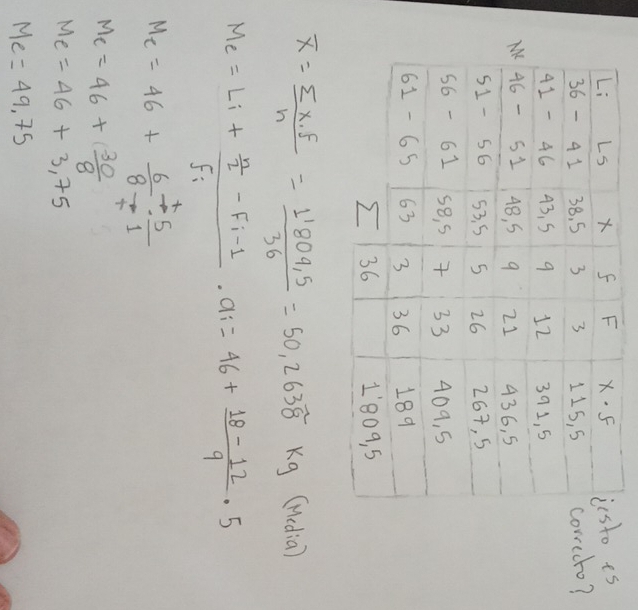 ¿esto es
correcto?
Li Ls x f F x·f
36 - 41 38,5 3 3 115,5
41 - 46 43,5 9 12 391,5
46 - 51 48,5 9 21 436,5
51 - 56 53,5 5 26 267,5
56 - 61 58,5 7 33 409,5
61 - 65 63 3 36 189
Σ 36 1'809,5
x̄ = Σx.f / n = 1'809,5 / 36 = 50,2638 Kg (Media)
Me = Li + (n/2 - Fi-1) / fi . ai = 46 + (18 - 12) / 9 . 5
Me = 46 + 6/8 . 5/1
Me = 46 + 30/8
Me = 46 + 3,75
Me = 49,75